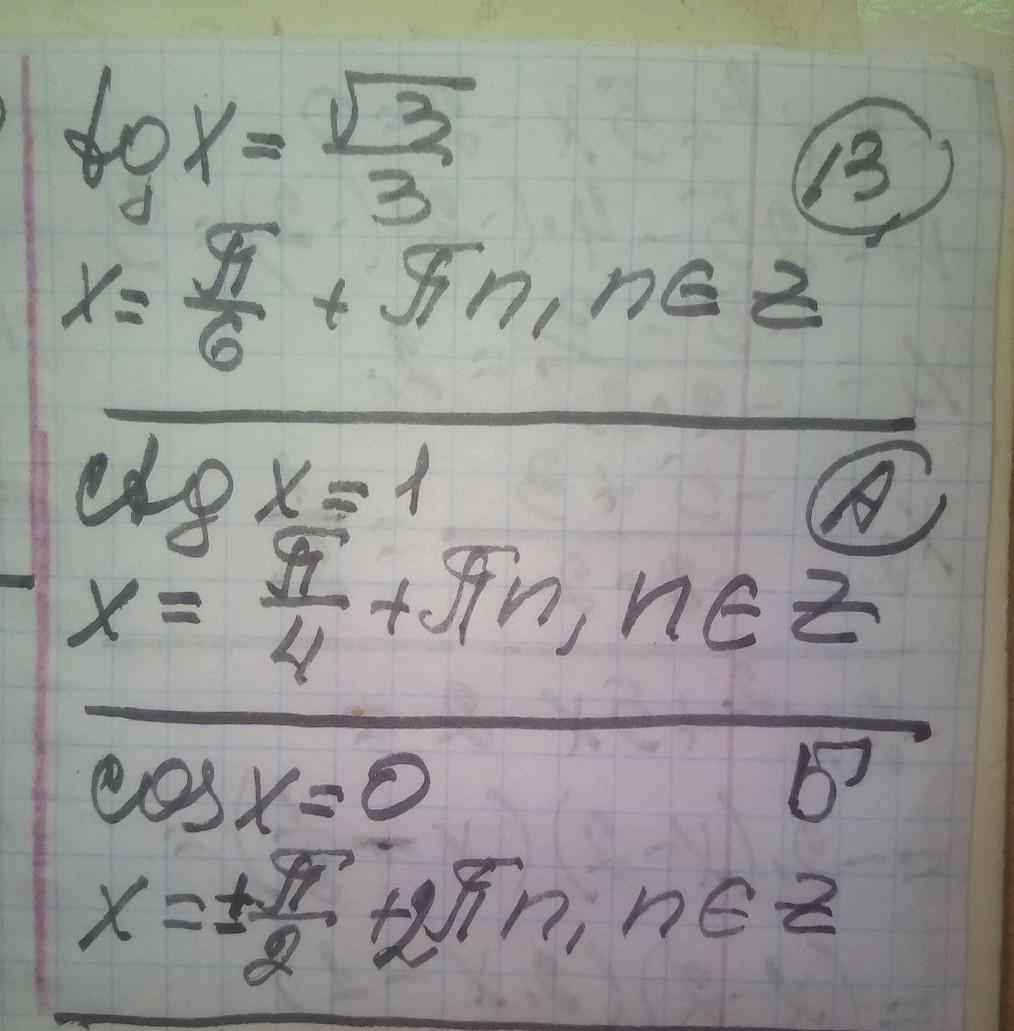 tg x = √3/3 В
x = π/6 + πn, n ∈ Z
ctg x = 1 А
x = π/4 + πn, n ∈ Z
cos x = 0 Б
x = ± π/2 + 2πn, n ∈ Z